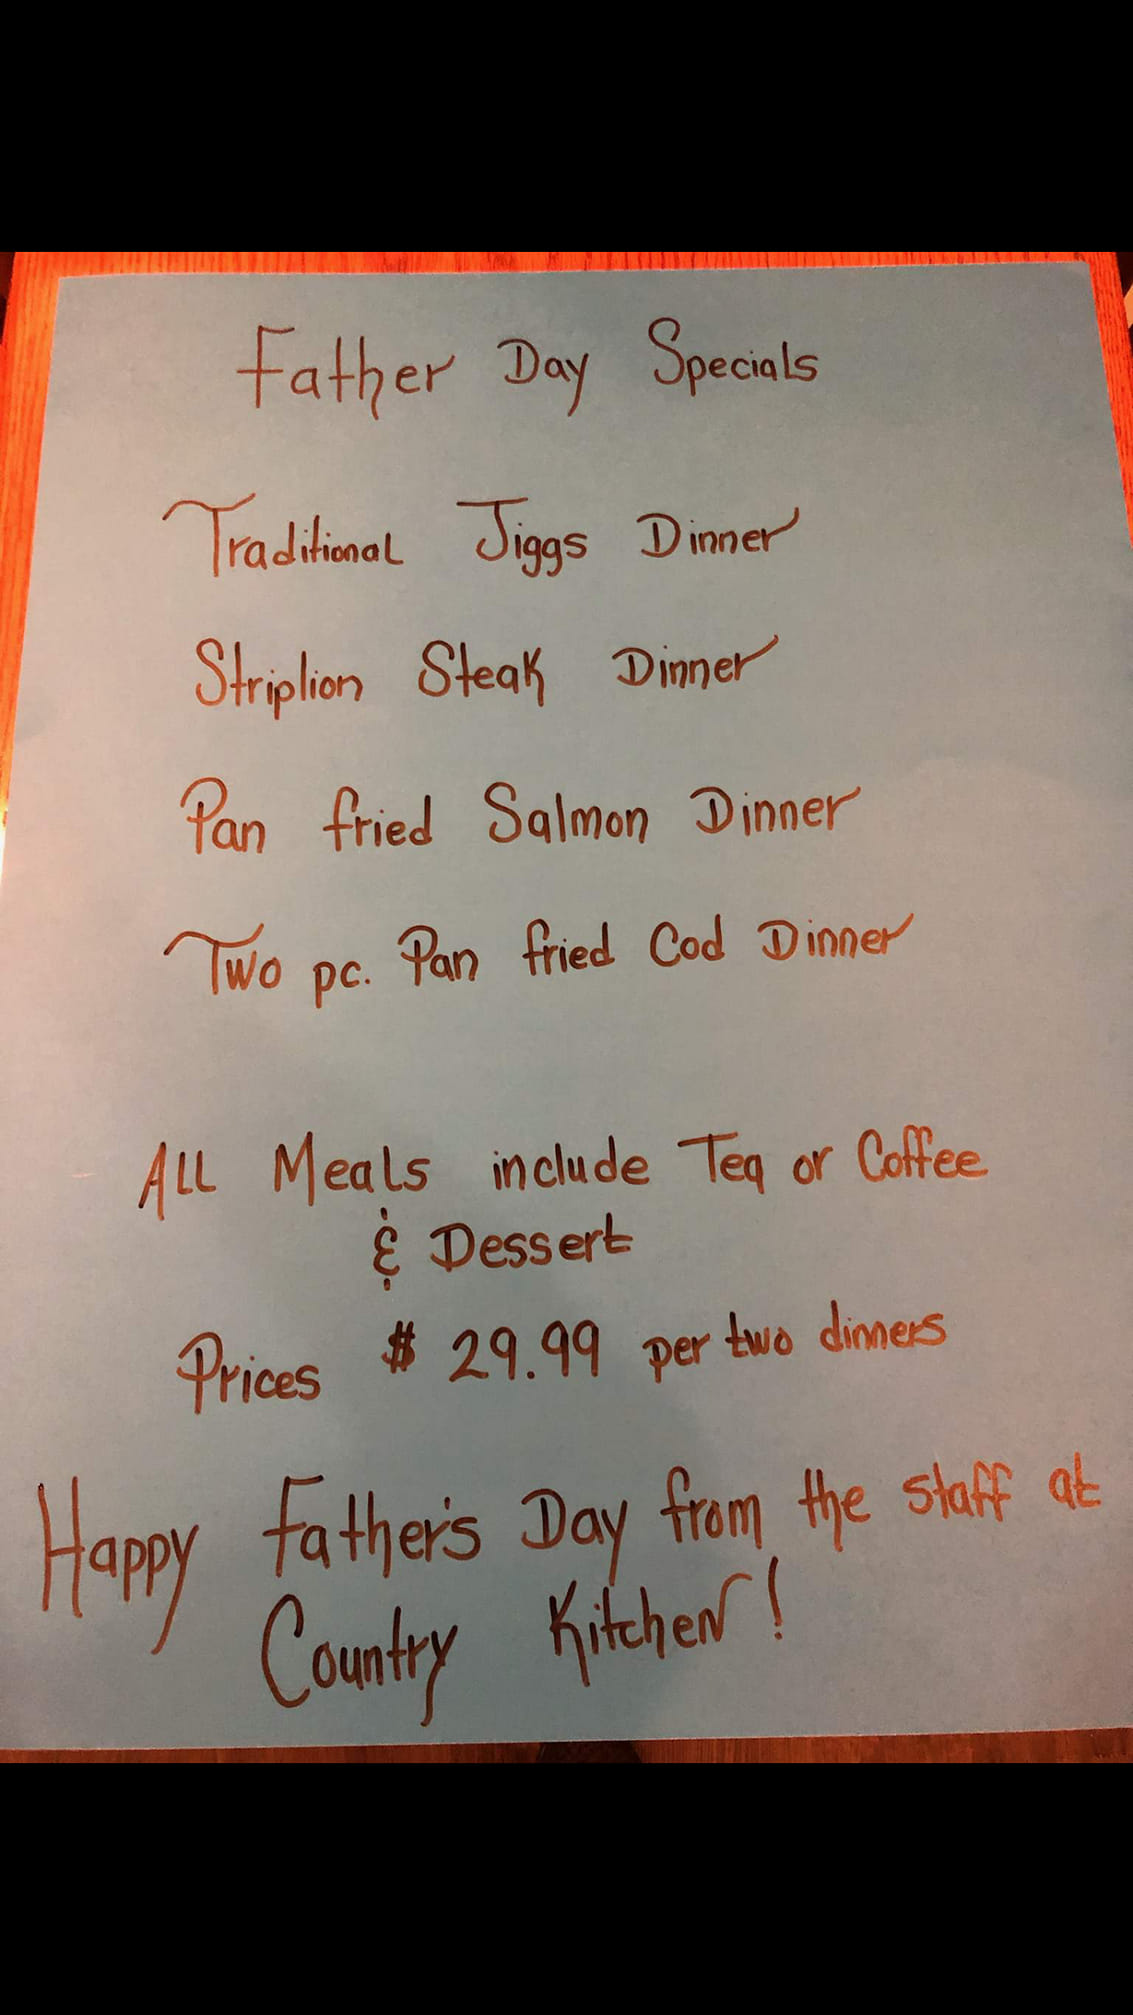 Father Day Specials
Traditional Jiggs Dinner
Striplion Steak Dinner
Pan fried Salmon Dinner
Two pc. Pan fried Cod Dinner
All Meals include Tea or Coffee
& Dessert
Prices $ 29.99 per two dinners
Happy Father's Day from the staff at
Country Kitchen!